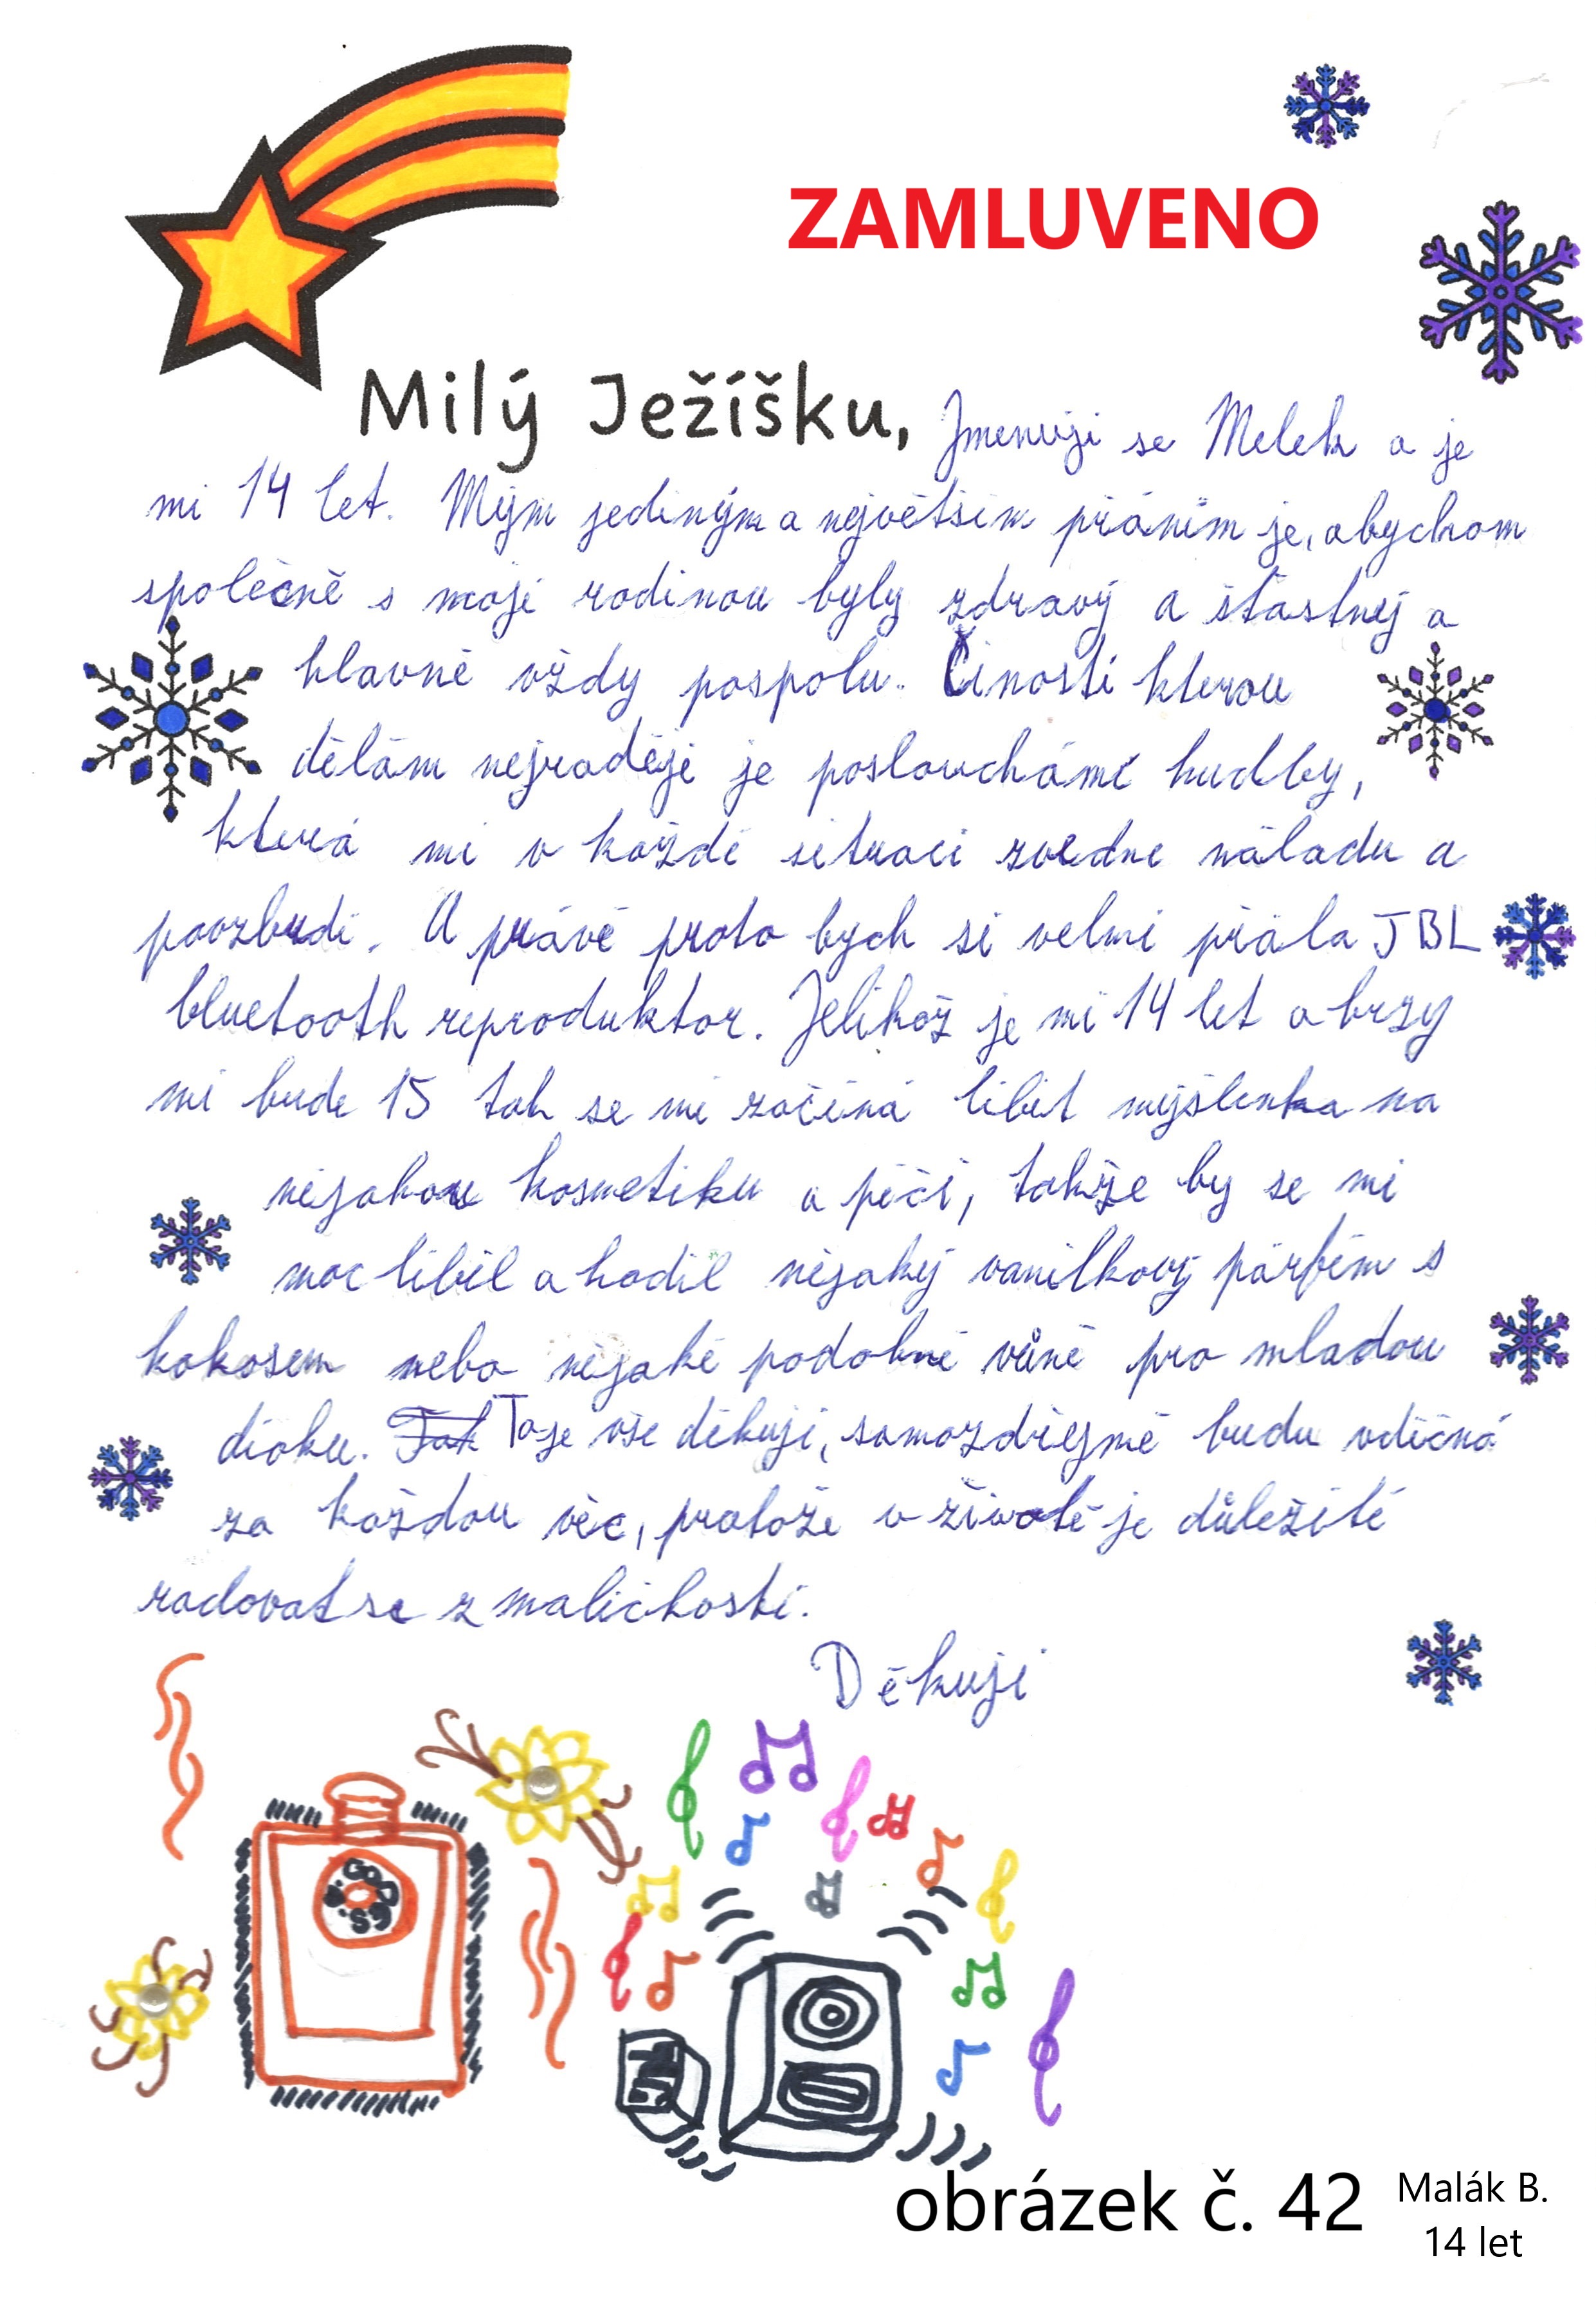 ZAMLUVENO
Milý Ježíšku, Jmenuji se Melek a je
mi 14 let. Mým jediným a největším přáním je, abychom
společně s mojí rodinou byly zdravý a šťastný a
hlavně vždy pospolu. Čiností kterou
dělám nejraději je poslouchámí hudby,
která mi v každé situaci zvedne náladu a
povzbudí. A právě proto bych si velmi přála JBL
bluetooth reproduktor. Jelikož je mi 14 let a brzy
mi bude 15 tak se mi začíná líbit myšlenka na
nějakou kosmetiku a péči, takže by se mi
moc líbil a hodil nějaký vanilkový párfém s
kokosem nebo nějaké podobné vůně pro mladou
dívku. To je vše děkuji, samozdřejmě budu vděčná
za každou věc, protože v životě je důležité
radovat se z maličkostí.
Děkuji
obrázek č. 42
Malák B.
14 let